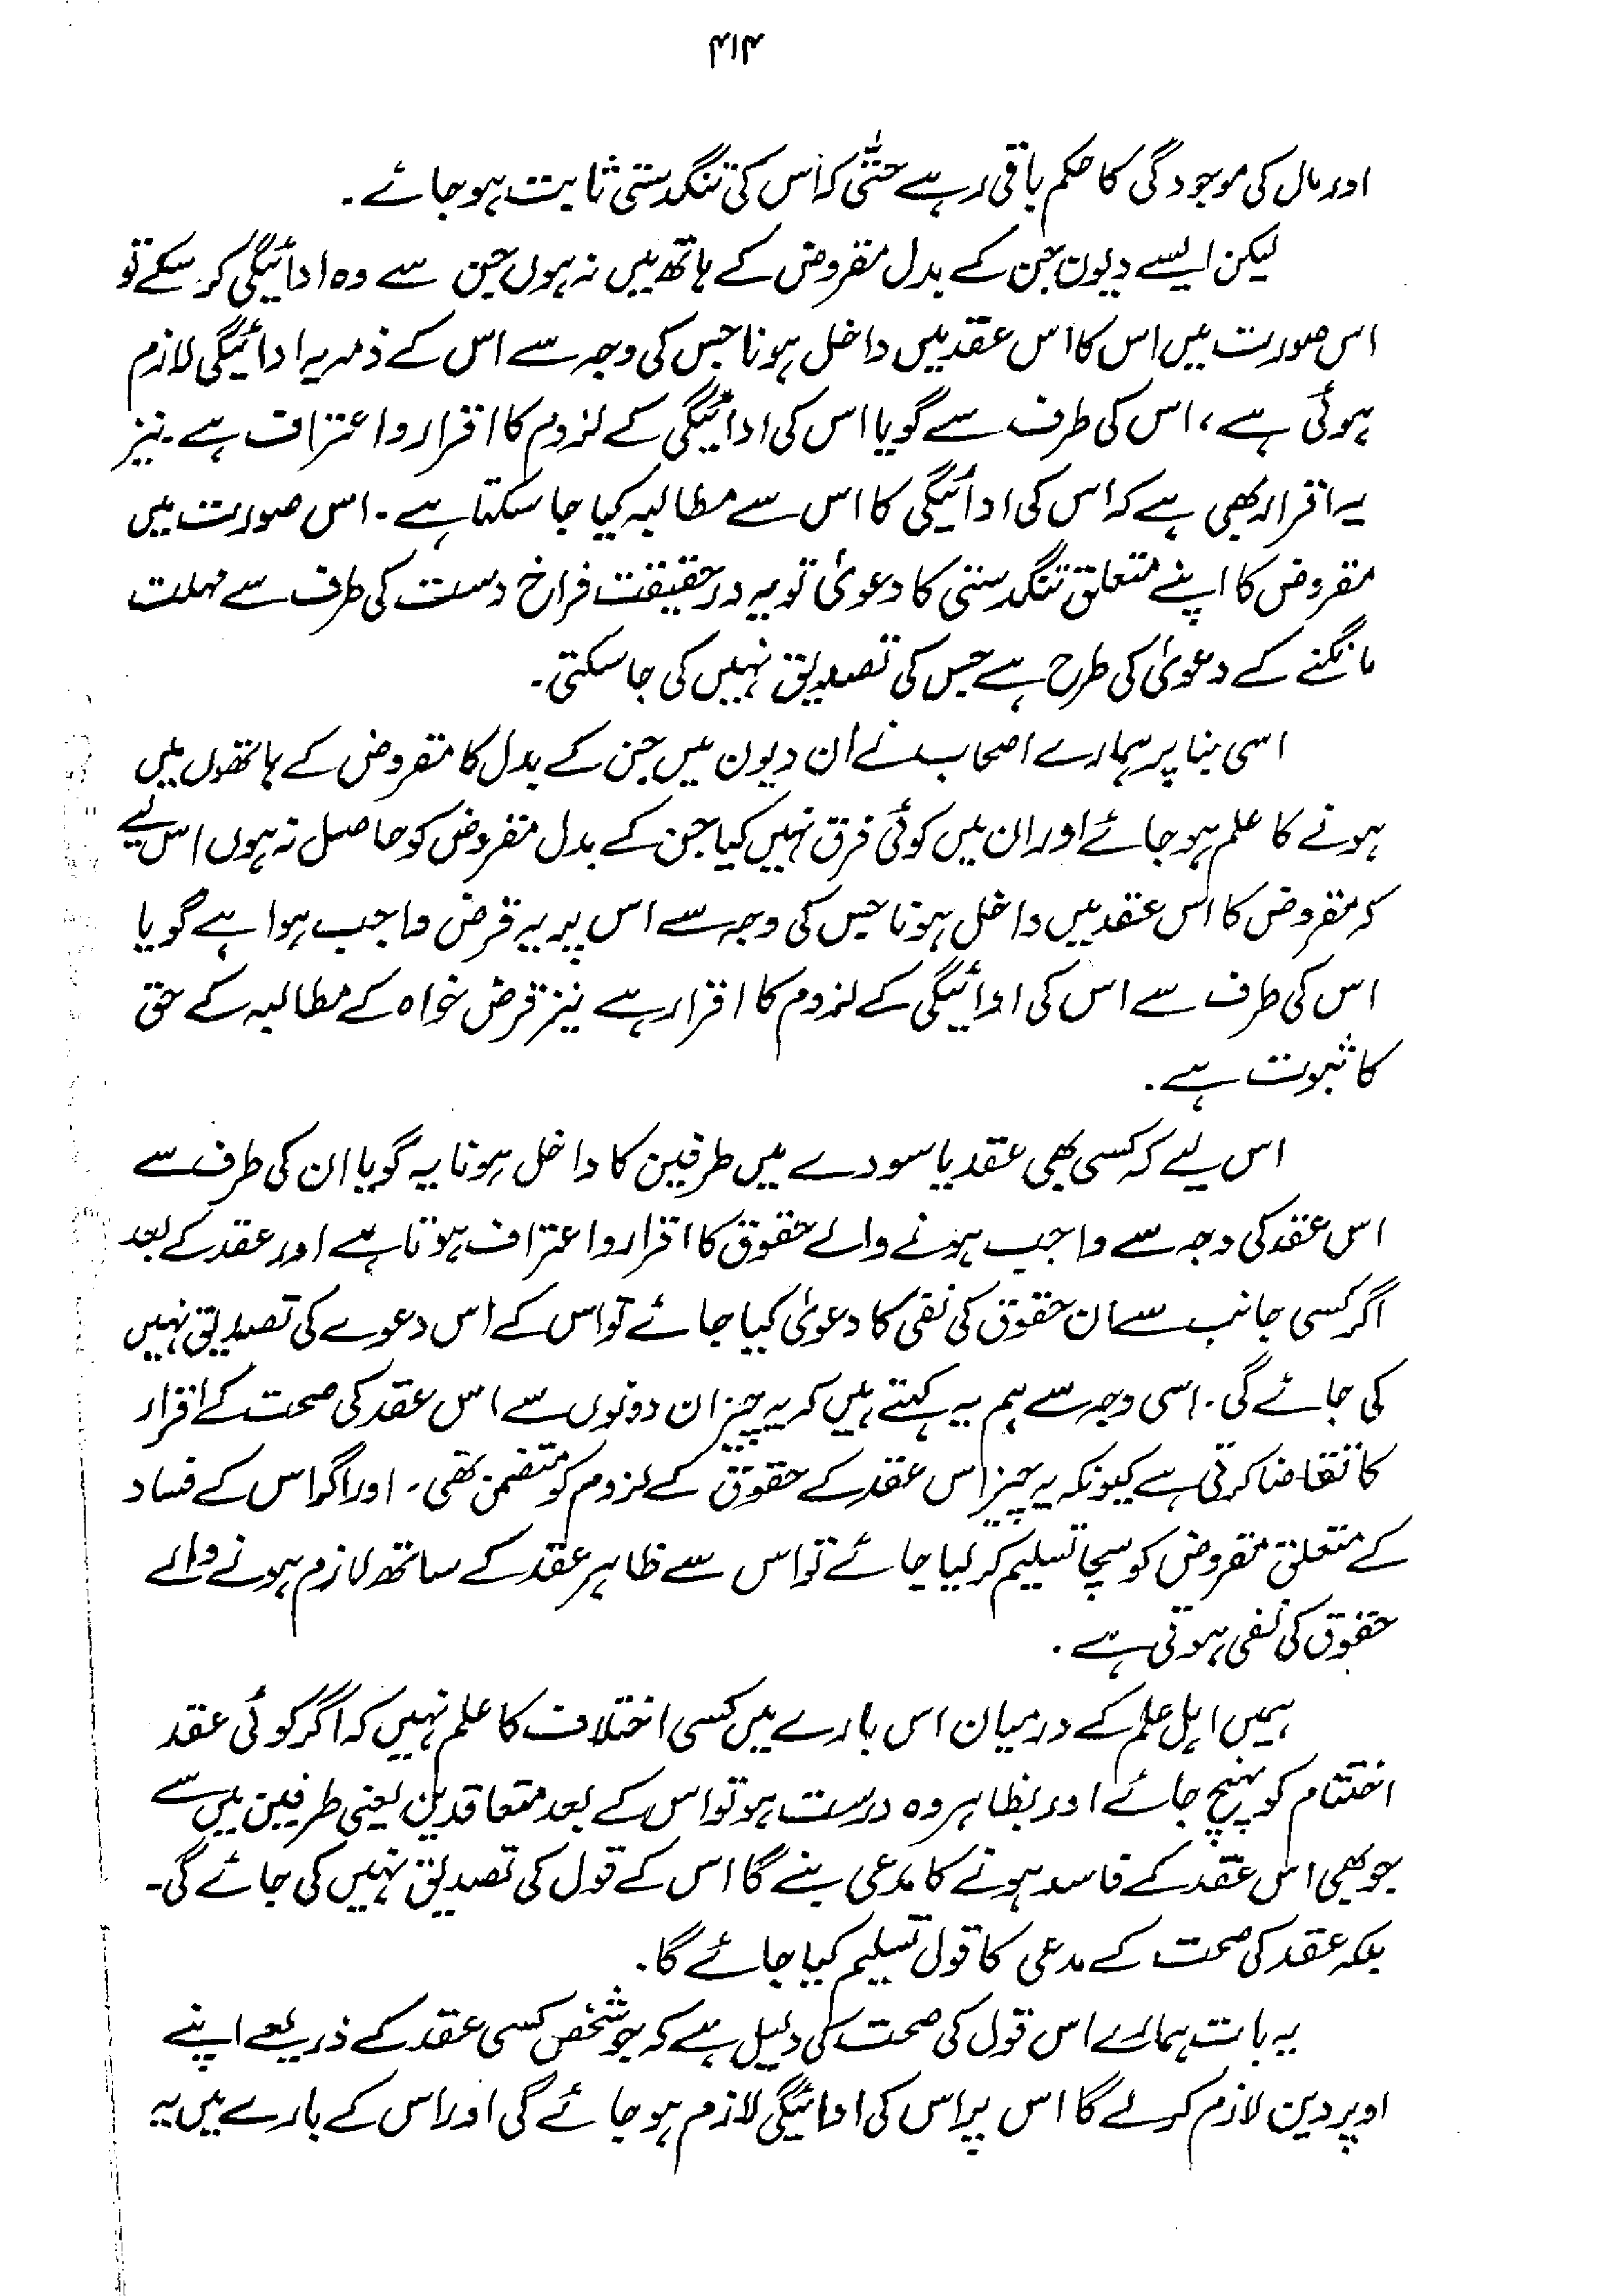 ۴۱۴
اور مال کی موجودگی کا حکم باقی رہے حتّٰی کہ اس کی تنگدستی ثابت ہو جائے۔
لیکن ایسے دیون جن کے بدل مقروض کے ہاتھ میں نہ ہوں جن سے وہ ادائیگی کر سکے تو
اس صورت میں اس کا اس عقد میں داخل ہونا جس کی وجہ سے اس کے ذمہ یہ ادائیگی لازم
ہوئی ہے، اس کی طرف سے گویا اس کی ادائیگی کے لزوم کا اقرار و اعتراف ہے۔ نیز
یہ اقرار بھی ہے کہ اس کی ادائیگی کا اس سے مطالبہ کیا جا سکتا ہے۔ اس صورت میں
مقروض کا اپنے متعلق تنگدستی کا دعویٰ تو یہ درحقیقت فراخ دست کی طرف سے مہلت
مانگنے کے دعویٰ کی طرح ہے جس کی تصدیق نہیں کی جا سکتی۔
اسی بنا پر ہمارے اصحاب نے ان دیون میں جن کے بدل کا مقروض کے ہاتھوں میں
ہونے کا علم ہو جائے اور ان میں کوئی فرق نہیں کیا جن کے بدل مقروض کو حاصل نہ ہوں اس لیے
کہ مقروض کا اس عقد میں داخل ہونا جس کی وجہ سے اس پر یہ قرض واجب ہوا ہے گویا
اس کی طرف سے اس کی ادائیگی کے لزوم کا اقرار ہے نیز قرض خواہ کے مطالبہ کے حق
کا ثبوت ہے۔
اس لیے کہ کسی بھی عقد یا سودے میں طرفین کا داخل ہونا یہ گویا ان کی طرف سے
اس عقد کی وجہ سے واجب ہونے والے حقوق کا اقرار و اعتراف ہوتا ہے اور عقد کے بعد
اگر کسی جانب سے ان حقوق کی نفی کا دعویٰ کیا جائے تو اس کے اس دعوے کی تصدیق نہیں
کی جائے گی۔ اسی وجہ سے ہم یہ کہتے ہیں کہ یہ چیز ان دونوں سے اس عقد کی صحت کے اقرار
کا تقاضا کرتی ہے کیونکہ یہ چیز اس عقد کے حقوق کے لزوم کو متضمن تھی۔ اور اگر اس کے فساد
کے متعلق مقروض کو سچا تسلیم کر لیا جائے تو اس سے ظاہر عقد کے ساتھ لازم ہونے والے
حقوق کی نفی ہوتی ہے۔
ہمیں اہل علم کے درمیان اس بارے میں کسی اختلاف کا علم نہیں کہ اگر کوئی عقد
اختتام کو پہنچ جائے اور بظاہر وہ درست ہو تو اس کے بعد متعاقدین یعنی طرفین میں سے
جو بھی اس عقد کے فاسد ہونے کا مدعی بنے گا اس کے قول کی تصدیق نہیں کی جائے گی۔
بلکہ عقد کی صحت کے مدعی کا قول تسلیم کیا جائے گا۔
یہ بات ہمارے اس قول کی صحت کی دلیل ہے کہ جو شخص کسی عقد کے ذریعے اپنے
اوپر دین لازم کر لے گا اس پر اس کی ادائیگی لازم ہو جائے گی اور اس کے بارے میں یہ